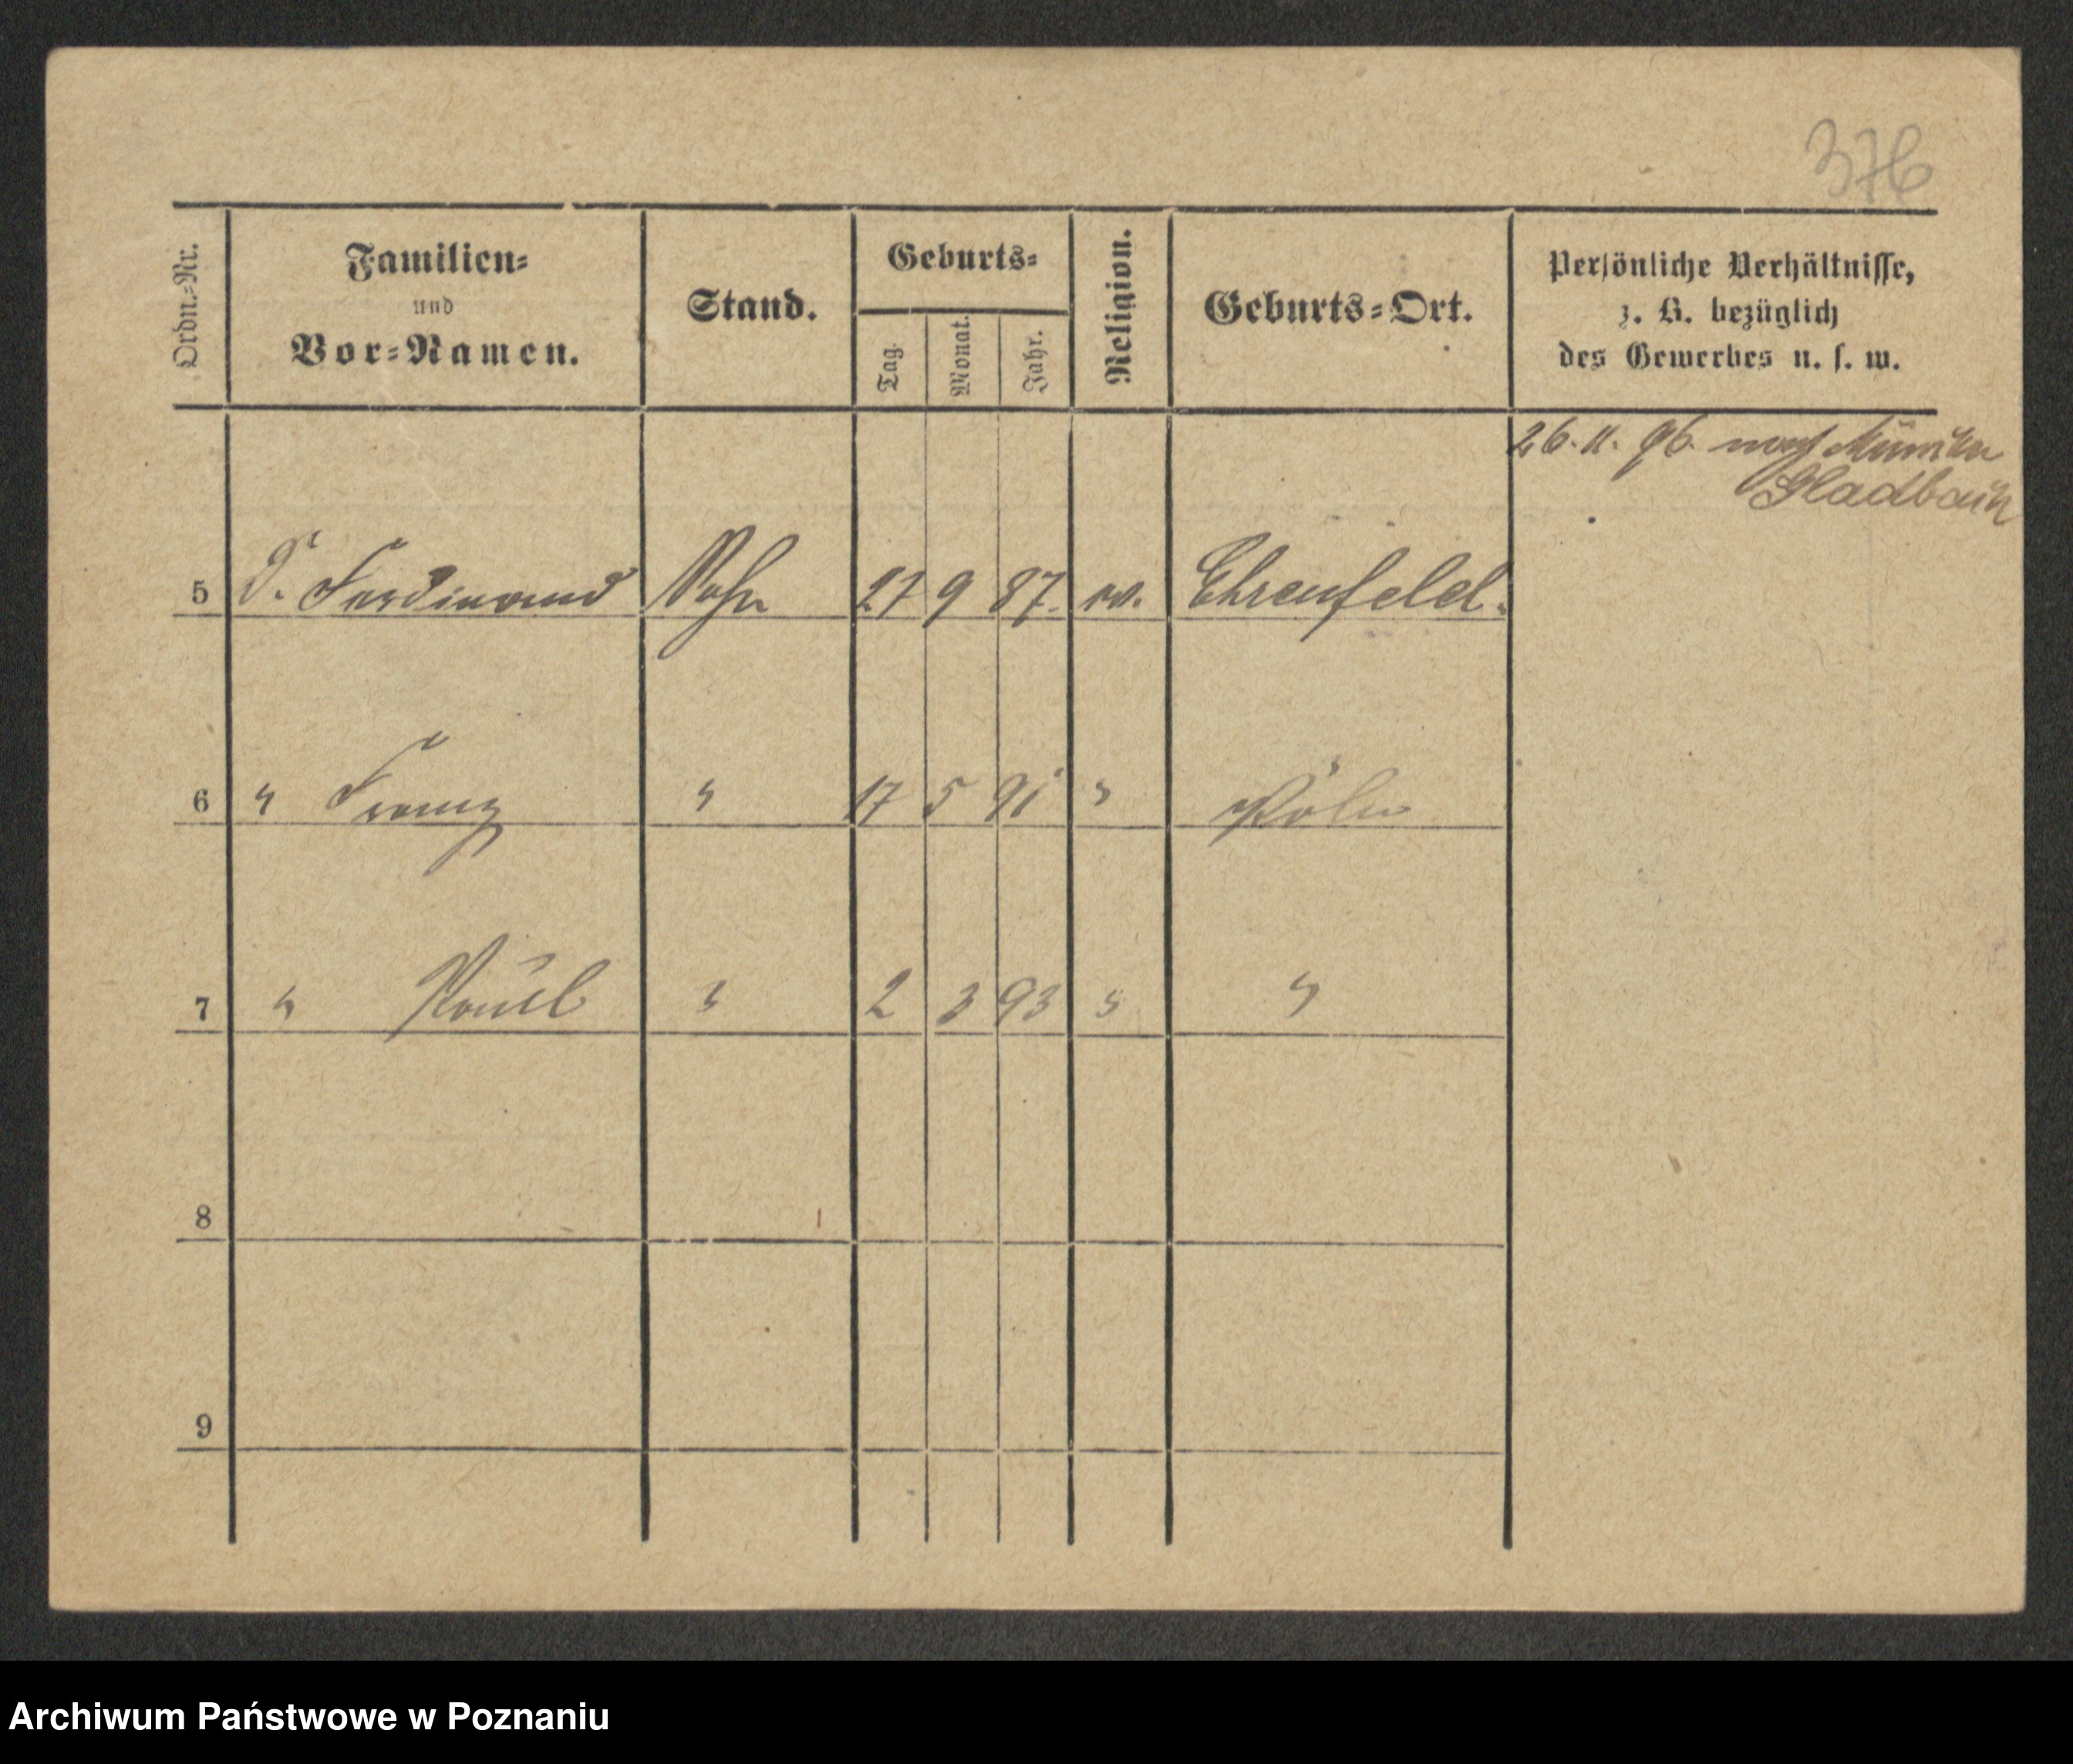 376
Ordn.=Nr.
Familien=
und
Vor=Namen.
Stand.
Geburts=
Tag.
Monat.
Jahr.
Religion.
Geburts=Ort.
Persönliche Verhältnisse,
z. B. bezüglich
des Gewerbes u. s. w.
26. 11. 96. nach München
Gladbach
5 D. Ferdinand Sohn 27 9 87. ev. Ehrenfeld.
6 " Franz " 17 5 91 " Köln
7 " Paul " 2 3 93 " "
8
9
Archiwum Państwowe w Poznaniu